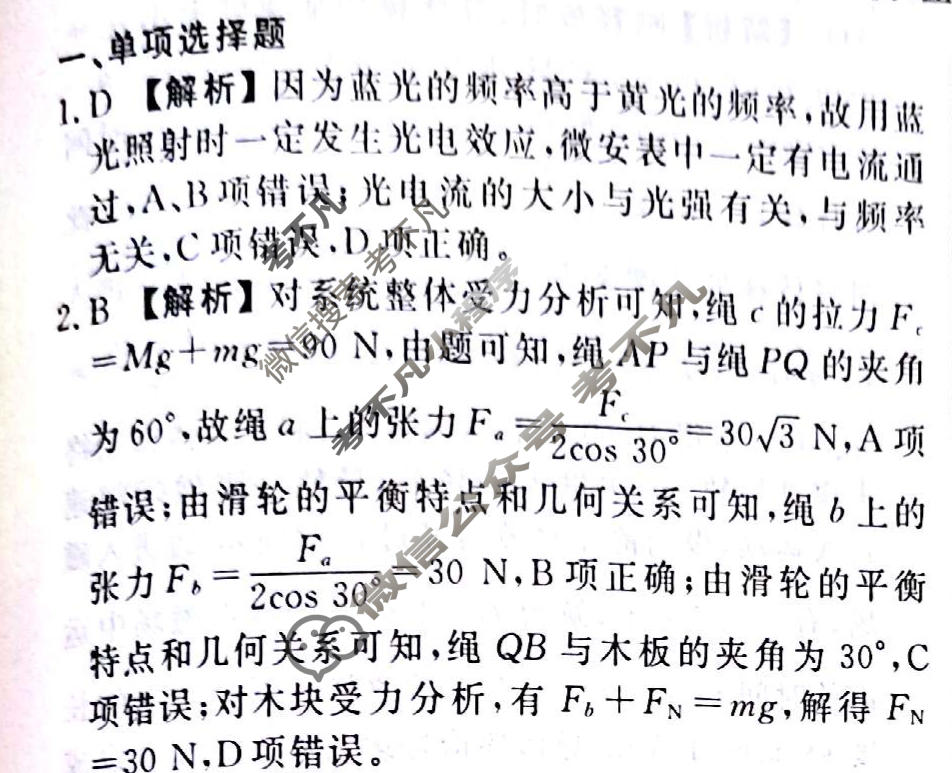 一、单项选择题
1. D 【解析】因为蓝光的频率高于黄光的频率,故用蓝
光照射时一定发生光电效应,微安表中一定有电流通
过,A、B项错误;光电流的大小与光强有关,与频率
无关,C项错误,D项正确。
2. B 【解析】对系统整体受力分析可知,绳 c 的拉力 F_c
=Mg+mg=90 N,由题可知,绳 AP 与绳 PQ 的夹角
为 60°,故绳 a 上的张力 F_a=F_c/(2cos 30°)=30√3 N,A 项
错误;由滑轮的平衡特点和几何关系可知,绳 b 上的
张力 F_b=F_a/(2cos 30°)=30 N,B 项正确;由滑轮的平衡
特点和几何关系可知,绳 QB 与木板的夹角为 30°,C
项错误;对木块受力分析,有 F_b+F_N=mg,解得 F_N
=30 N,D 项错误。
考不凡
微信搜索考不凡
考不凡小程序
微信公众号 考不凡